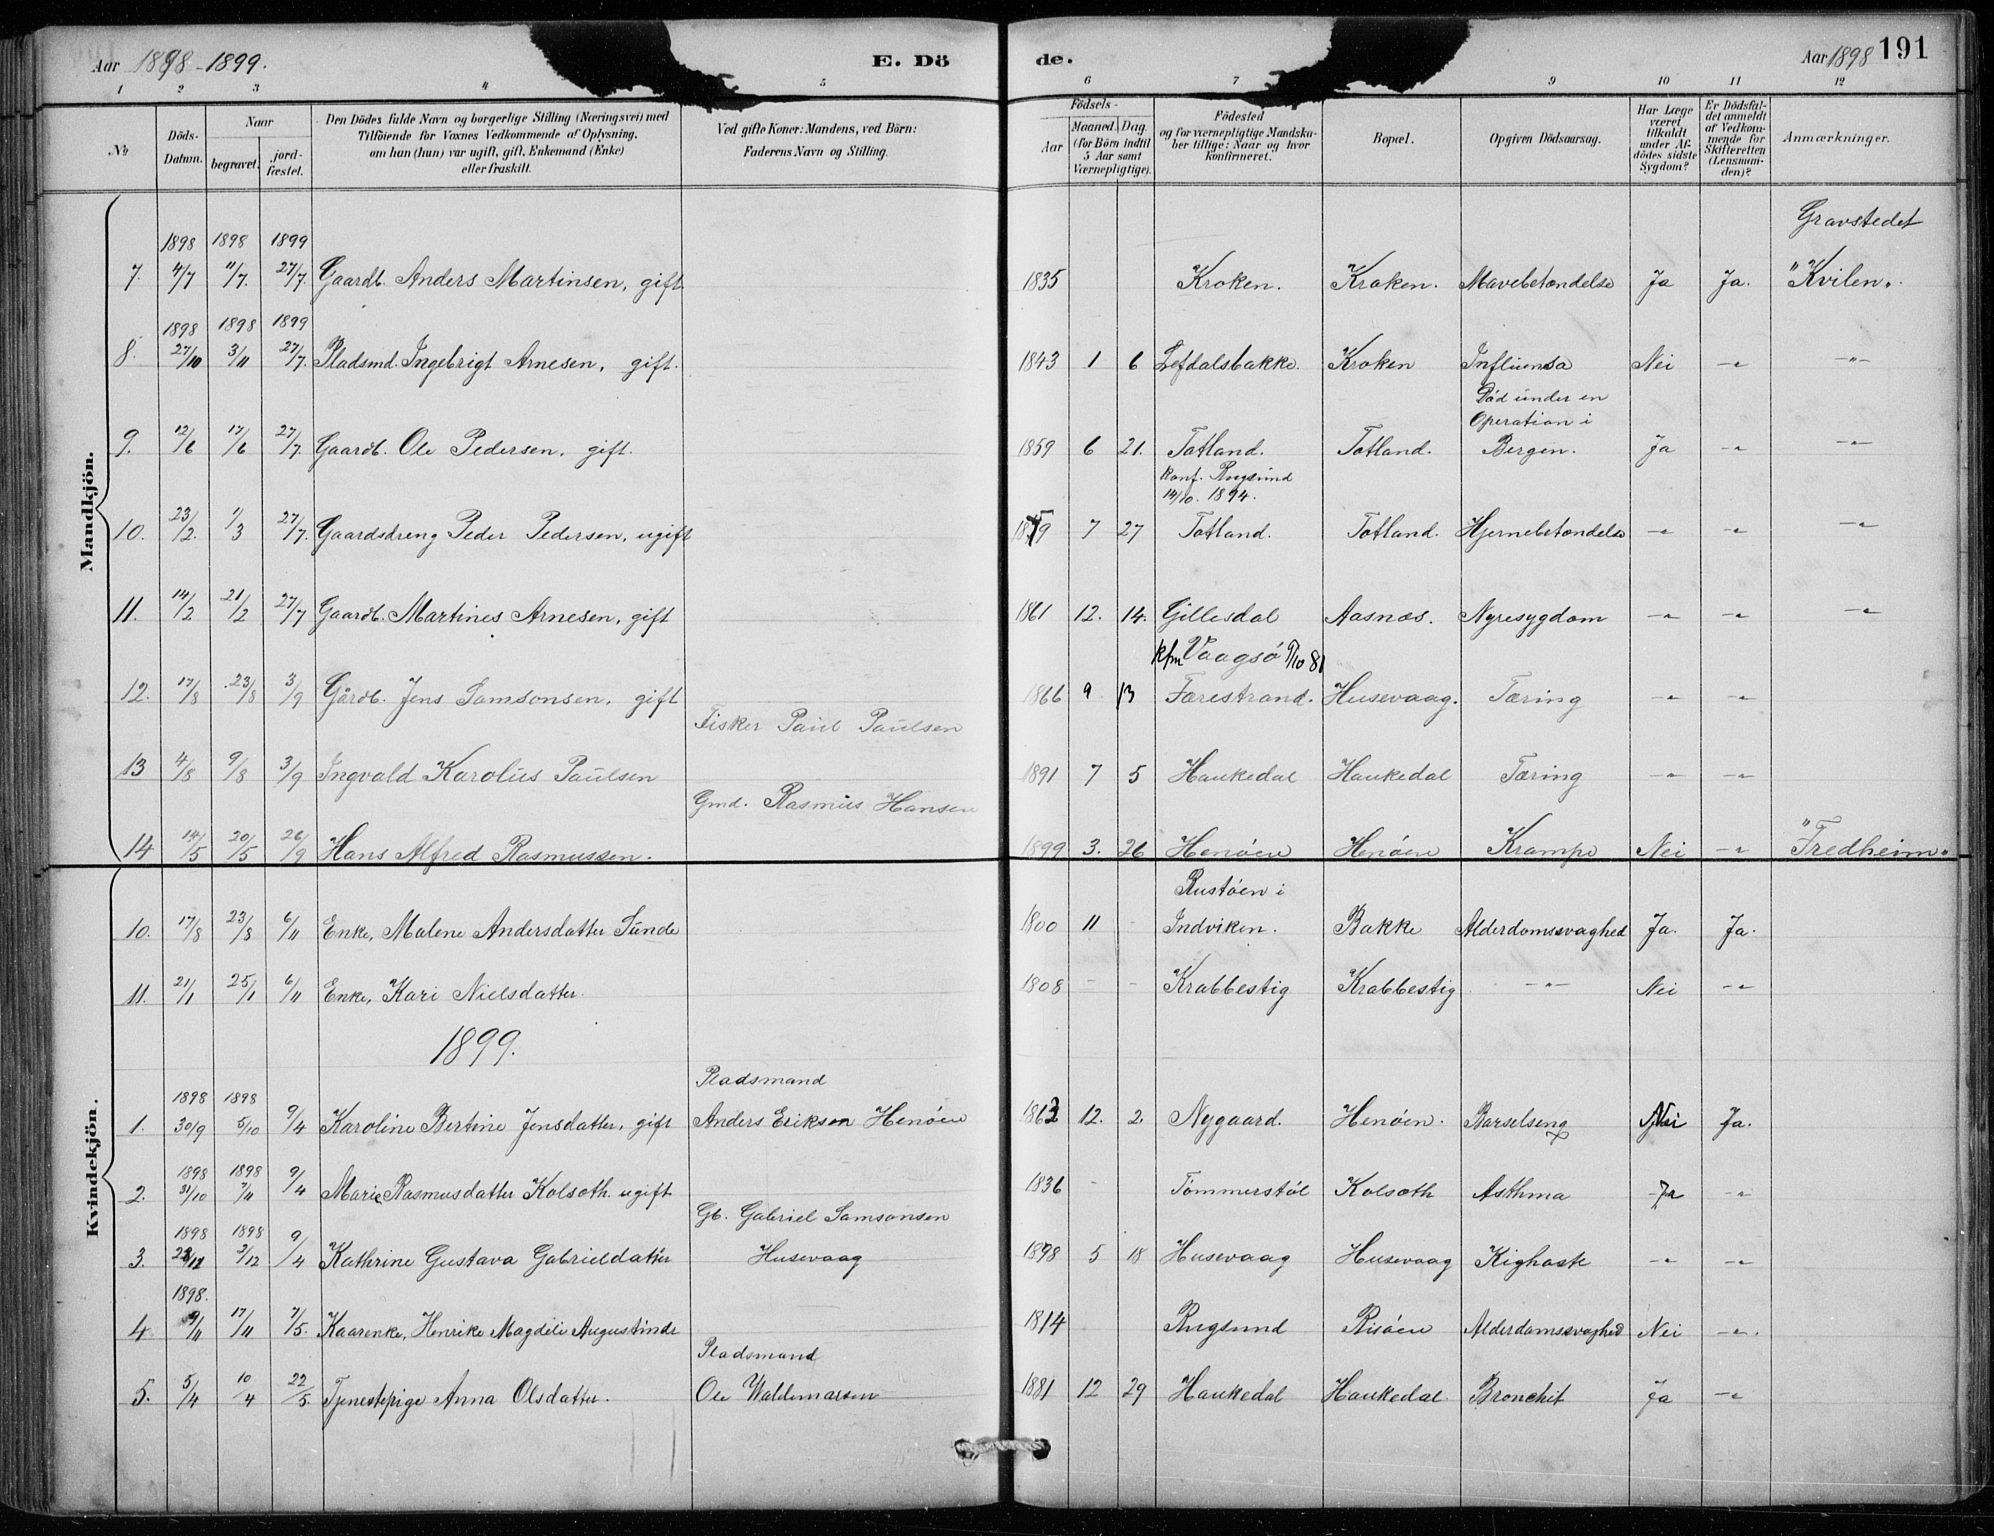 Aar 1898-1899.
E. Dö
de.
Aar 1898 191
1 2 3 4 5 6 7 9 10 11 12
№
Döds-Datum.
Naar
begravet.
jord-fæstet.
Den Dödes fulde Navn og borgerlige Stilling (Næringsvei) med
Tilföiende for Voxnes Vedkommende af Oplysning,
om han (hun) var ugift, gift, Enkemand (Enke)
eller fraskilt.
Ved gifte Koner: Mandens, ved Börn:
Faderens Navn og Stilling.
Födsels-
Aar
Maaned. Dag.
(for Börn indtil
5 Aar samt
Værnepligtige).
Födested
og for værnepligtige Mandska-
ber tillige: Naar og hvor
konfirmeret.
Bopæl.
Opgiven Dödsaarsag.
Har Læge
været
tilkaldt
under Af-
dödes sidste
Sygdom?
Er Dödsfal-
det anmeldt
af Vedkom-
mende for
Skifteretten
(Lensman-
den)?
Anmærkninger.
Mandkjön.
Gravstedet
1898 1898 1899
7. 4/7 11/7. 27/7. Gaardb. Anders Martinsen, gift. 1835 Kroken. Kroken. Mavebetændelse Ja Ja. "Kvilen".
1898 1898 1899
8. 27/10 3/11 27/7. Pladsmd. Ingebrigt Arnesen, gift. 1843 1 6 Lefdalsbakke. Kroken Influensa Nei -"- -"-
Död under en
Operation i
9. 12/6 17/6 27/7 Gaardb. Ole Pedersen, gift. 1859 6 21. Totland. Totland. Bergen. Ja -"- -"-
konf. Rugsund
14/10. 1894.
10. 23/2. 1/3 27/7. Gaardsdreng Peder Pedersen, ugift 1879 7 27 Totland. Totland. Hjernebetændelse -"- -"- -"-
11. 14/2 21/2 27/7 Gaardb. Martines Arnesen, gift 1861 12. 14. Gillesdal Aasnæs. Nyresygdom -"- -"- -"-
kfm Vaagsö 9/10 81
12. 17/8 23/8 3/9 Gårdb. Jens Samsonsen, gift 1866 9 13 Færestrand. Husevaag. Tæring -"- -"-
Fisker Paul Paulsen
13 4/8 9/8 3/9 Ingvald Karolus Paulsen 1891 7 5 Haukedal Haukedal Tæring -"- -"-
Gmd. Rasmus Hansen
14 14/5 20/5 26/9 Hans Alfred Rasmussen. 1899 3. 26 Henöen Henöen Krampe Nei -"- "Fredheim"
Kvindekjön.
Rustöen i
10. 17/8 23/8 6/11 Enke, Malene Andersdatter Sunde 1800 11 - Indviken. Bakke Alderdomssvaghed Ja. Ja.
11. 21/1 25/1 6/11 Enke, Kari Nielsdatter. 1808 - - Krabbestig Krabbestig -"- Nei -"-
1899.
Pladsmand
1898 1898
1. 30/9 5/10 9/4 Karoline Bertine Jensdatter, gift Anders Eriksen Henöen 1863 12. 2. Nygaard. Henöen. Barselseng Nei Ja.
1898 1898
2. 31/10 7/11 9/4 Marie Rasmusdatter Kolsoth. ugift 1836 - Tömmerstöl Kolsoth Asthma Ja -"-
Gb. Gabriel Samsonsen
1898 1898
3. 22/11 2/12 9/4 Kathrine Gustava Gabrieldatter Husevaag 1898 5 18 Husevaag Husevaag Kighoste -"- -"-
1898.
4. 9/11 17/11 7/5. Kaarenke, Henrike Magdele Augustindr 1814 Rugsund Risöen Alderdomssvaghed Nei -"-.
Pladsmand
5. 5/4 10/4 22/5. Tjenestepige Anna Olsdatter. Ole Waldemarsen 1881 12 29 Haukedal Haukedal Bronchit Ja -"-